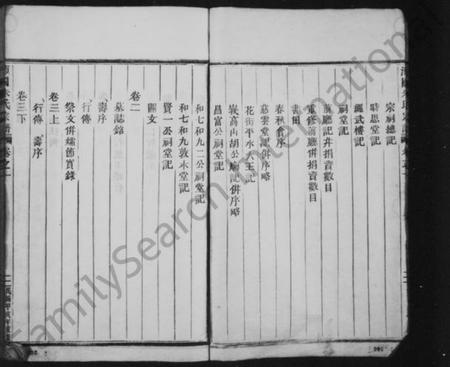 宗祠總記
聽思堂記
繩武樓記
祠堂記
前廳記并捐資數目
重修前廳併捐資數目
書田
春秋會序
慈雲堂記併序略
花街平水大王記
峴高山胡公廟記併序略
昌富公祠堂記
和七和九二公祠堂記
和七和九敦本堂記
賢一公祠堂記
圖文
卷二
墓誌銘
壽序
行傳
卷三上
祭文併孀節實錄
行傳 壽序
卷三下
FamilySearch International